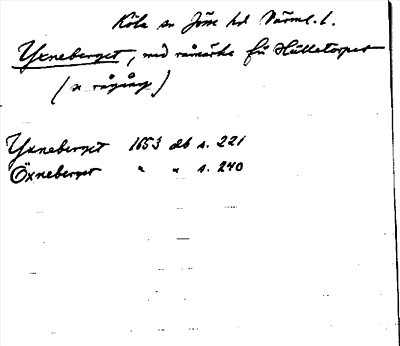 Köla sn Jösse hd Värml. l.
Yxneberget, med råmärke fü Hälletorpet
(å rågång)
Yxneberget 1653 db s. 221
Öxneberget " " s. 240